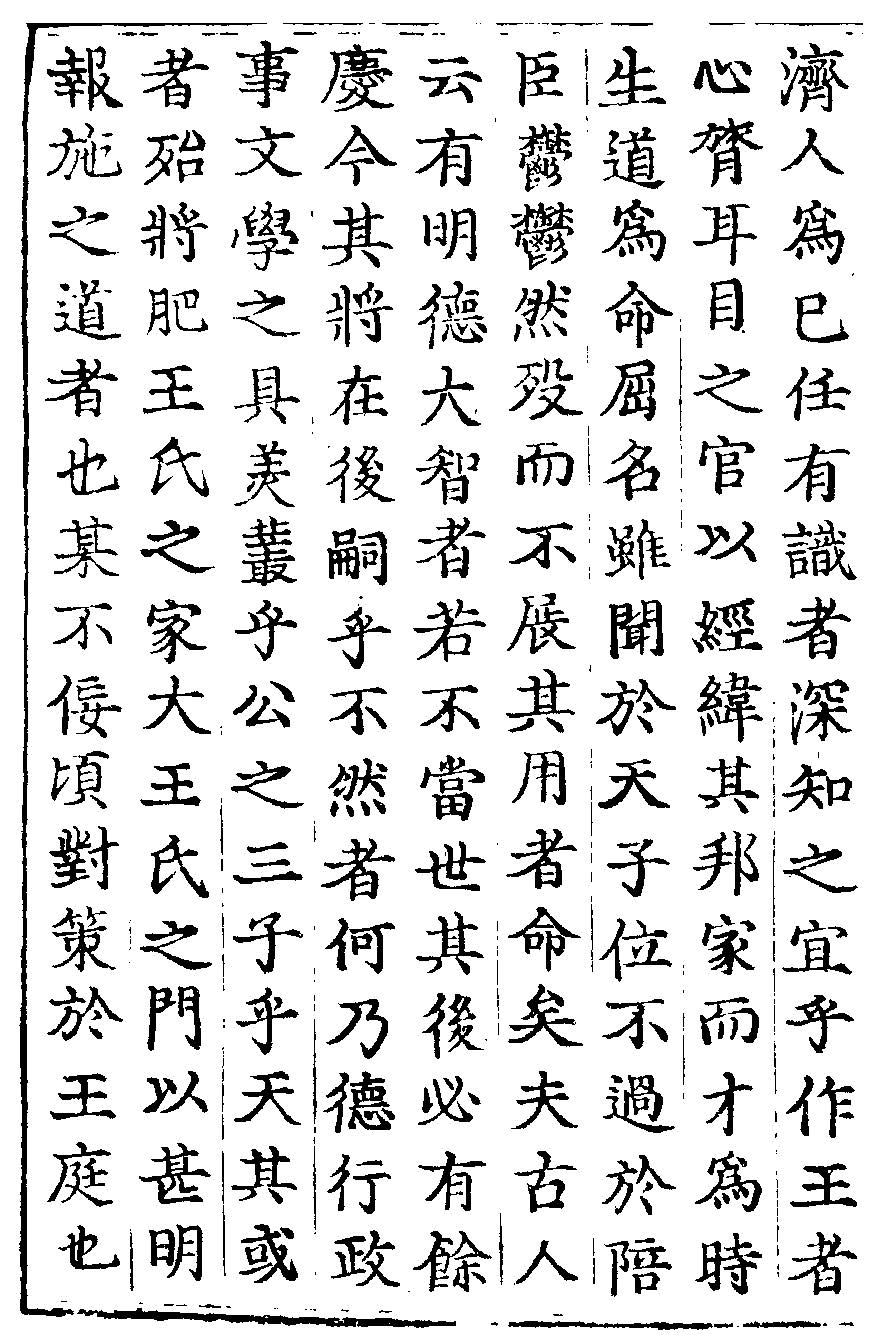 濟人爲己任有識者深知之宜乎作王者
心膂耳目之官以經緯其邦家而才爲時
生道爲命屈名雖聞於天子位不過於陪
臣鬱鬱然歿而不展其用者命矣夫古人
云有明德大智者若不當世其後必有餘
慶今其將在後嗣乎不然者何乃德行政
事文學之具美叢乎公之三子乎天其或
者殆將肥王氏之家大王氏之門以甚明
報施之道者也某不佞頃對策於王庭也